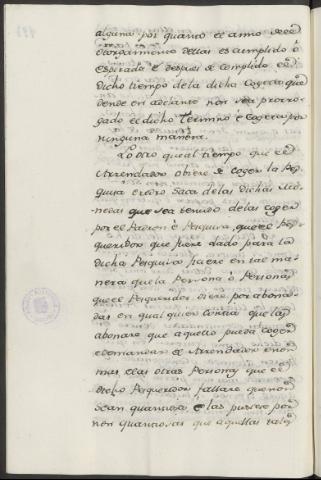 alguna por quanto el anno de el
otorgamiento dellas es cumplido ó
espirado é despues de complido el
dicho tiempo de la dicha cogecha que
dende en adelante non sea prorro-
gado el dicho termino é cogecha por
ninguna manera.
Lo otro que al tiempo que el
Arrendador obiere de coger la Pes-
quisa de las dichas Mo-
nedas que sea tenudo de las coger
por el Padron é Pesquisa, que el Pes-
queridor que fuere dado para la
dicha Pesquisa fuere en tal ma-
nera que la Persona ó Personas
que el Pesqueridor diere por abona-
das en qual quier contia que las
abonare que aquello pueda coger
é demandar el Arrendador é non
mas, é las otras Personas que el
dicho Pesqueridor fallare que non
sean quantiosas é las pusiere por
non quantiosas que aquellas tales